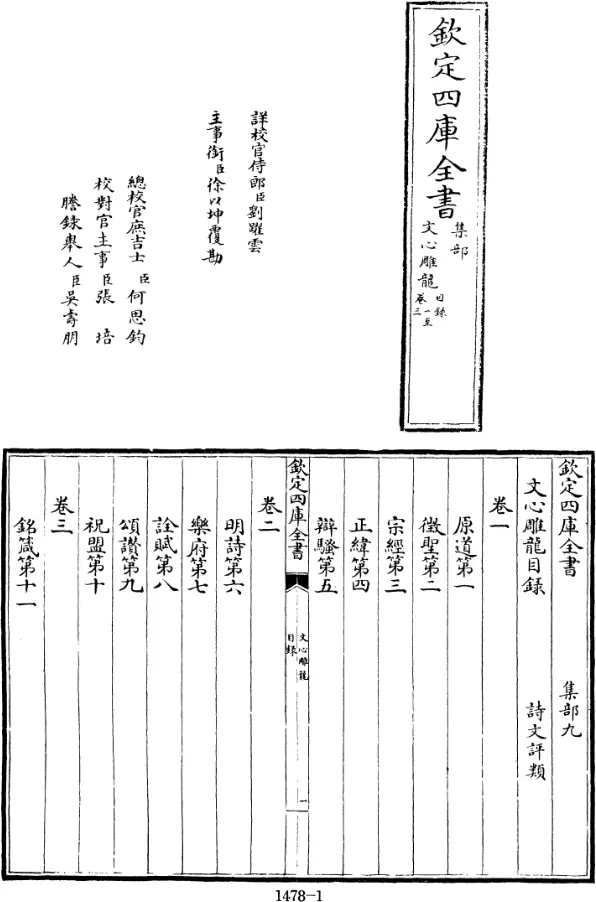 欽定四庫全書
集部
文心雕龍
目錄
卷一至
三
詳校官侍郎臣劉躍雲
主事銜臣徐以坤覆勘
總校官庶吉士臣何思鈞
校對官主事臣張培
謄錄舉人臣吳壽朋
欽定四庫全書 集部九
文心雕龍目錄 詩文評類
卷一
原道第一
徵聖第二
宗經第三
正緯第四
辯騷第五
欽定四庫全書
文心雕龍
目錄
一
卷二
明詩第六
樂府第七
詮賦第八
頌讚第九
祝盟第十
卷三
銘箴第十一
1478-1